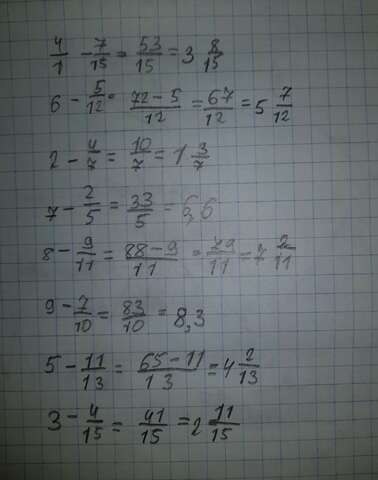 4/1 - 7/15 = 53/15 = 3 8/15
6 - 5/12 = 72-5/12 = 67/12 = 5 7/12
2 - 4/7 = 10/7 = 1 3/7
7 - 2/5 = 33/5 = 6,6
8 - 9/11 = 88-9/11 = 79/11 = 7 2/11
9 - 7/10 = 83/10 = 8,3
5 - 11/13 = 65-11/13 = 4 2/13
3 - 4/15 = 41/15 = 2 11/15